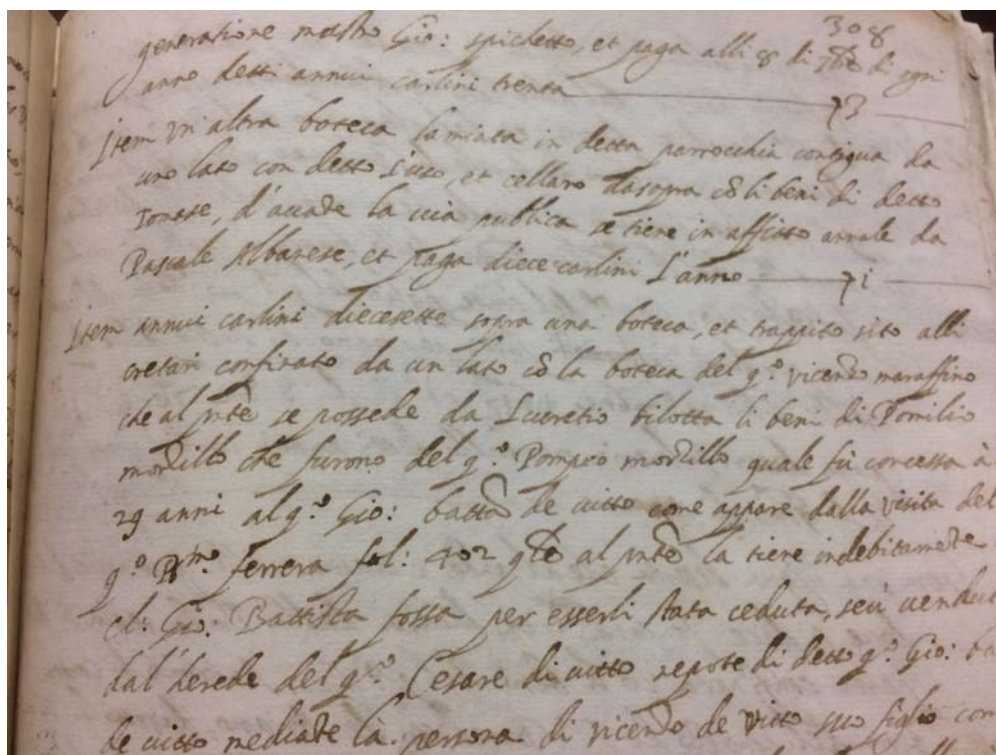 308
generatione mastro Gio: spichetto, et paga alli 8 di 7bre di ogni
anno detti annui carlini trenta — 3
Item un'altra boteca lamiata in detta parrocchia contigua da
uno lato con detto et cellaro dasopra cō li beni di detto
Tonase, d'auāte la uia publica se tiene in affitto annale da
Pascale Albanese, et paga diece carlini l'anno — i
Item annui carlini diecesette sopra una boteca, et trappito sito alli
cretari confinato da un lato cō la boteca del q.º vicenzo maraffino
che al pnte se possede da Lucretio bilotta li beni di Pomilio
mordillo che furono del q.º Pompeo mordillo quale fù concessa à
29 anni al q.º Gio: batta de uitto come appare dalla visita del
q.º Rmo. ferrera fol: 402 al pnte la tiene indebitamēte
cl: Gio: Battista fossa per esserli stata ceduta, seu uendut
dal'herede del q.º Cesare di uitto nepote di detto q.º Gio: ba
de uitto mediāte la persona di vicenzo de vitto suo figlio con